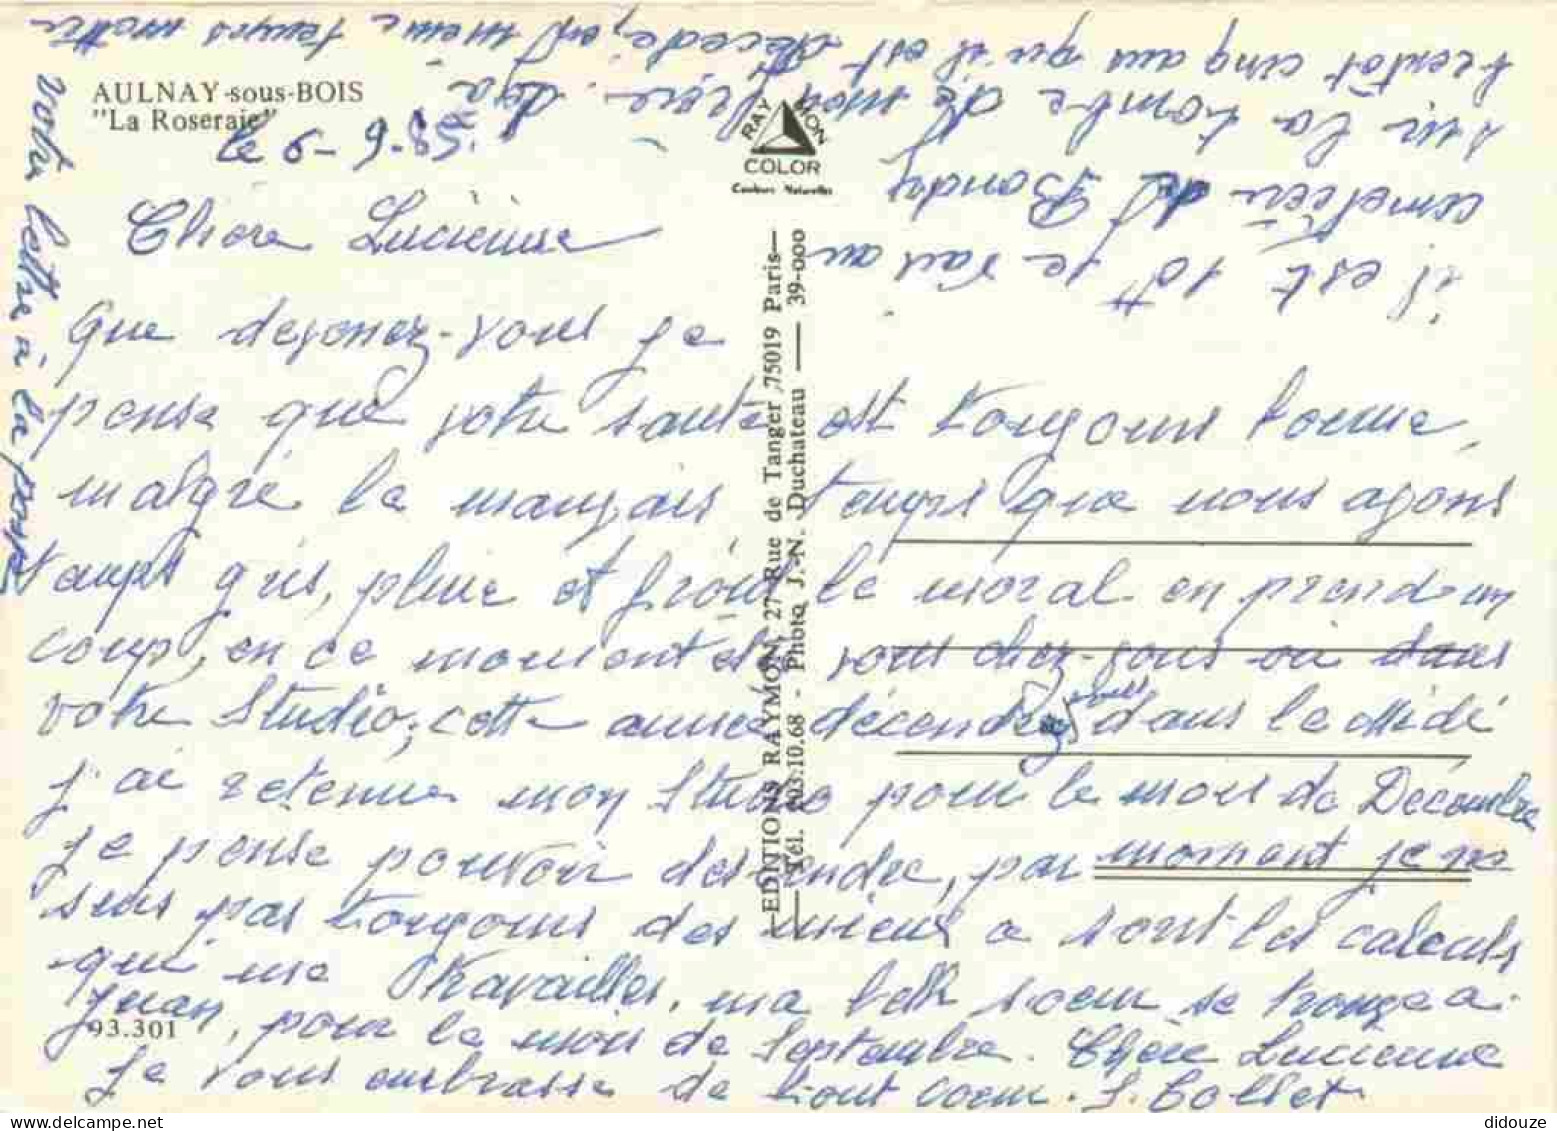 AULNAY-sous-BOIS
"La Roseraie"
le 6-9-85.
Chère Lucienne
Que devenez-vous je
pense que votre santé est toujours bonne,
malgré le mauvais temps que nous avons
temps gris, pluie et froid le moral en prend un
coup, en ce moment êtes vous chez-vous ou dans
votre Studio, cette année décendez vous dans le Midi
j'ai retenue mon Studio pour le mois de Décembre
je pense pouvoir descendre, par moment je ne
suis pas toujours des mieux ce sont les calculs
qui me travailles, ma belle soeur se trouve a
Juan, pour le mois de Septembre. Chère Lucienne
Je vous embrasse de tout coeur. J. Bollet
il est 10H je vais au
cimetière de Bondy
sur la tombe de mon frère. déjà
trentet cinq ans qu'il est décédé, en même temps mettre
votre lettre à la poste
RAYMON
COLOR
Couleurs Naturelles
EDITIONS RAYMON, 27 Rue de Tanger, 75019 Paris
Tél. 203.10.68 - Photo J.-N. Duchateau — 39-000
93.301
didouze